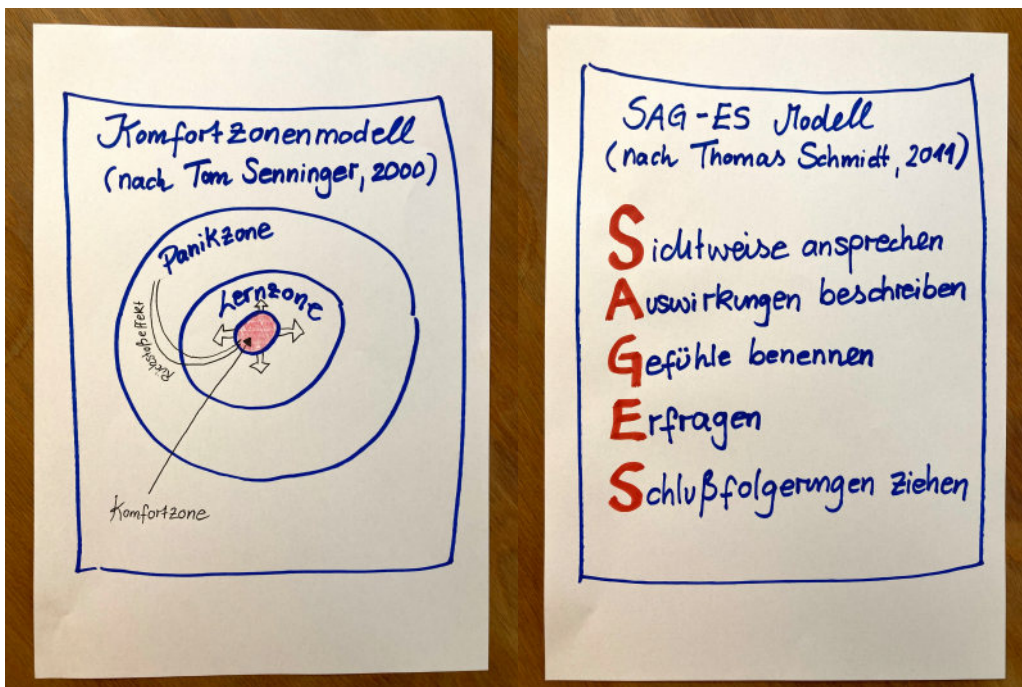 Komfortzonenmodell
(nach Tom Senninger, 2000)
Panikzone
Lernzone
Rückstoßeffekt
Komfortzone
SAG-ES Modell
(nach Thomas Schmidt, 2011)
Sichtweise ansprechen
Auswirkungen beschreiben
Gefühle benennen
Erfragen
Schlußfolgerungen ziehen